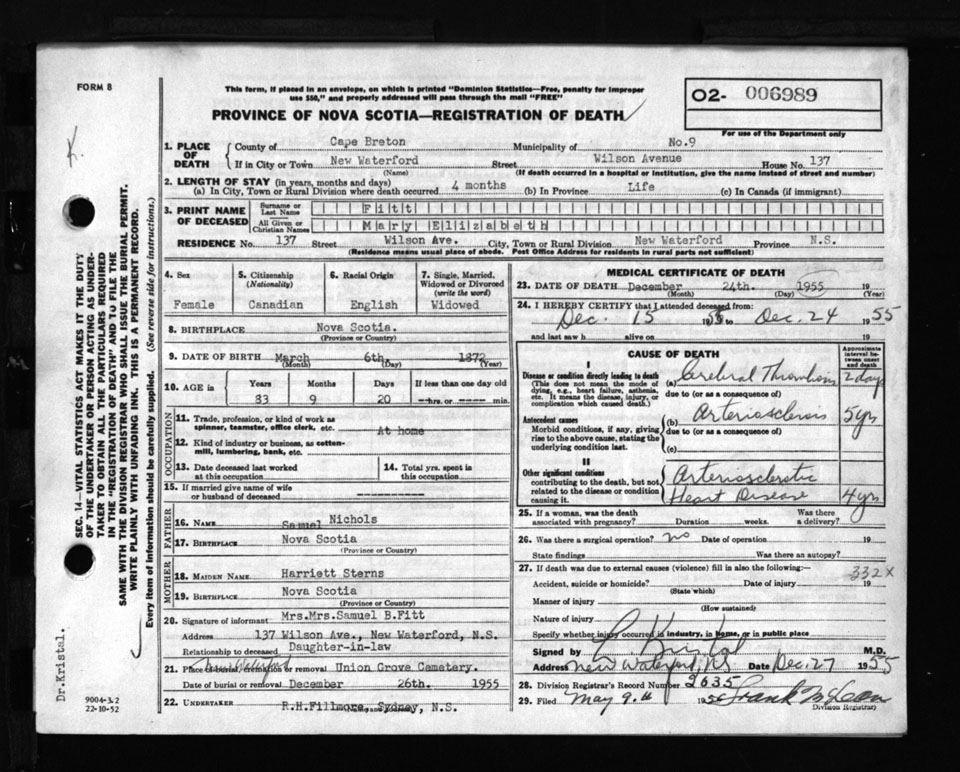 FORM 8
This form, if placed in an envelope, on which is printed "Dominion Statistics—Free, penalty for improper
use $50," and properly addressed will pass through the mail "FREE"
PROVINCE OF NOVA SCOTIA—REGISTRATION OF DEATH
O2- 006989
For use of the Department only
K.
1. PLACE OF DEATH
County of Cape Breton Municipality of No.9
If in City or Town New Waterford Street Wilson Avenue House No. 137
(Name) (If death occurred in a hospital or institution, give the name instead of street and number)
2. LENGTH OF STAY (in years, months and days)
(a) In City, Town or Rural Division where death occurred 4 months (b) In Province Life (c) In Canada (if immigrant)
3. PRINT NAME OF DECEASED
Surname or Last Name Fitt
All Given or Christian Names Mary Elizabeth
RESIDENCE No. 137 Street Wilson Ave. City, Town or Rural Division New Waterford Province N.S.
(Residence means usual place of abode. Post Office Address for residents in rural parts not sufficient)
4. Sex
Female
5. Citizenship (Nationality)
Canadian
6. Racial Origin
English
7. Single, Married, Widowed or Divorced (write the word)
Widowed
8. BIRTHPLACE Nova Scotia.
(Province or Country)
9. DATE OF BIRTH March 6th, 1872
(Month) (Day) (Year)
10. AGE in
Years Months Days If less than one day old
83 9 20 --hrs. or -- min.
OCCUPATION
11. Trade, profession, or kind of work as
spinner, teamster, office clerk, etc. At home
12. Kind of industry or business, as cotten-
mill, lumbering, bank, etc.
13. Date deceased last worked
at this occupation
14. Total yrs. spent in
this occupation
15. If married give name of wife
or husband of deceased -----------
FATHER
16. NAME Samuel Nichols
17. BIRTHPLACE Nova Scotia
(Province or Country)
MOTHER
18. MAIDEN NAME Harriett Sterns
19. BIRTHPLACE Nova Scotia
(Province or Country)
20. Signature of informant Mrs.Mrs.Samuel B.Fitt
Address 137 Wilson Ave., New Waterford, N.S.
Relationship to deceased Daughter-in-law
21. Place of burial, cremation or removal New Waterford Union Grove Cemetery.
Date of burial or removal December 26th. 1955
22. UNDERTAKER R.H.Fillmore, Sydney, N.S.
MEDICAL CERTIFICATE OF DEATH
23. DATE OF DEATH December 24th. 1955 19
(Month) (Day) (Year)
24. I HEREBY CERTIFY that I attended deceased from:
Dec. 15 1955 to Dec. 24 1955
and last saw h alive on 19
CAUSE OF DEATH
Approximate interval between onset and death
I
Disease or condition directly leading to death
(This does not mean the mode of
dying, e.g., heart failure, asthenia,
etc. It means the disease, injury, or
complication which caused death.)
(a) Cerebral Thrombosis 2 days
due to (or as a consequence of)
Antecedent causes
Morbid conditions, if any, giving
rise to the above cause, stating the
underlying condition last.
(b) Arteriosclerosis 5 yrs
due to (or as a consequence of)
(c)
II
Other significant conditions
contributing to the death, but not
related to the disease or condition
causing it.
Arteriosclerotic
Heart Disease 4 yrs
25. If a woman, was the death
associated with pregnancy? Duration weeks. Was there a delivery?
26. Was there a surgical operation? no Date of operation 19
State findings Was there an autopsy?
27. If death was due to external causes (violence) fill in also the following:—
332X
Accident, suicide or homicide? Date of injury 19
(State which)
Manner of injury
(How sustained)
Nature of injury
Specify whether injury occurred in industry, in home, or in public place
Signed by C. Kristal M.D.
Address New Waterford, NS Date Dec. 27 1955
28. Division Registrar's Record Number 2635
29. Filed May 9th 1956 Frank McLean
Division Registrar)
SEC. 14—VITAL STATISTICS ACT MAKES IT THE DUTY
OF THE UNDERTAKER OR PERSON ACTING AS UNDER-
TAKER TO OBTAIN ALL THE PARTICULARS REQUIRED
IN THE "REGISTRATION OF DEATH" AND TO FILE THE
SAME WITH THE DIVISION REGISTRAR WHO SHALL ISSUE THE BURIAL PERMIT.
WRITE PLAINLY WITH UNFADING INK. THIS IS A PERMANENT RECORD.
Every item of information should be carefully supplied. (See reverse side for instructions.)
Dr.Kristal.
9004-3.2
22-10-52